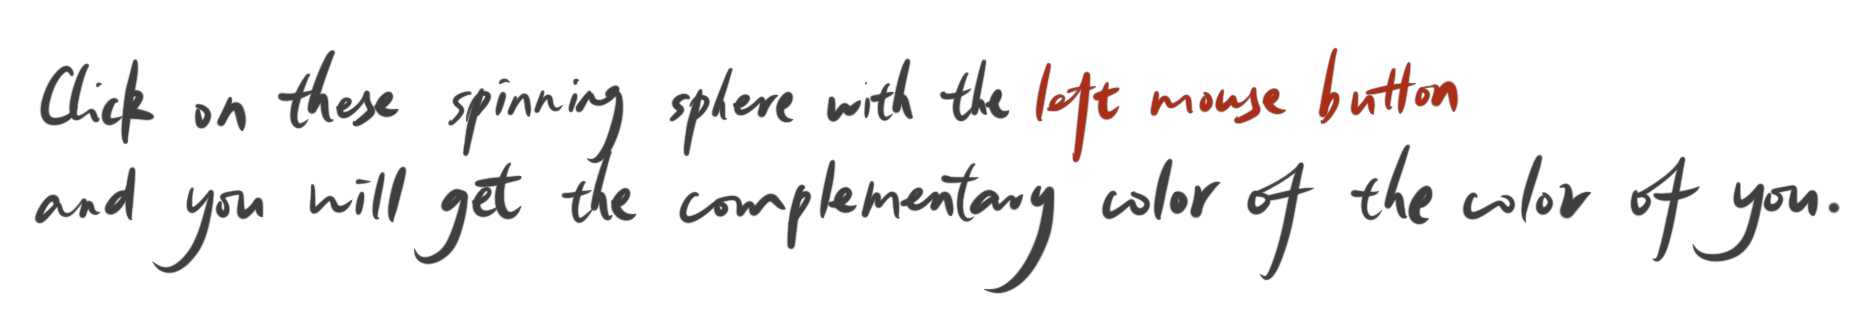 Click on these spinning sphere with the left mouse button
and you will get the complementary color of the color of you.